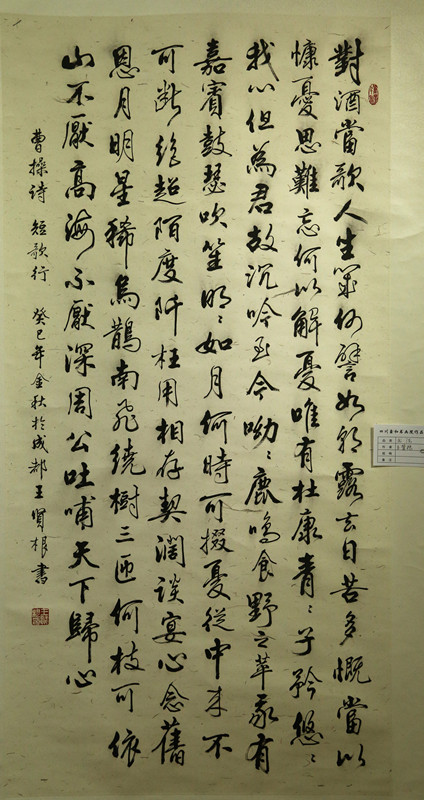 對酒當歌人生幾何譬如朝露去日苦多慨當以
慷憂思難忘何以解憂唯有杜康青〻子矜悠〻
我心但為君故沉吟至今呦〻鹿鳴食野之苹我有
嘉賓鼓瑟吹笙明〻如月何時可掇憂從中来不
可斷絕越陌度阡枉用相存契闊談宴心念舊
恩月明星稀烏鵲南飛繞樹三匝何枝可依
山不厭高海不厭深周公吐哺天下歸心
曹操詩 短歌行 癸巳年金秋於成都王賢根書